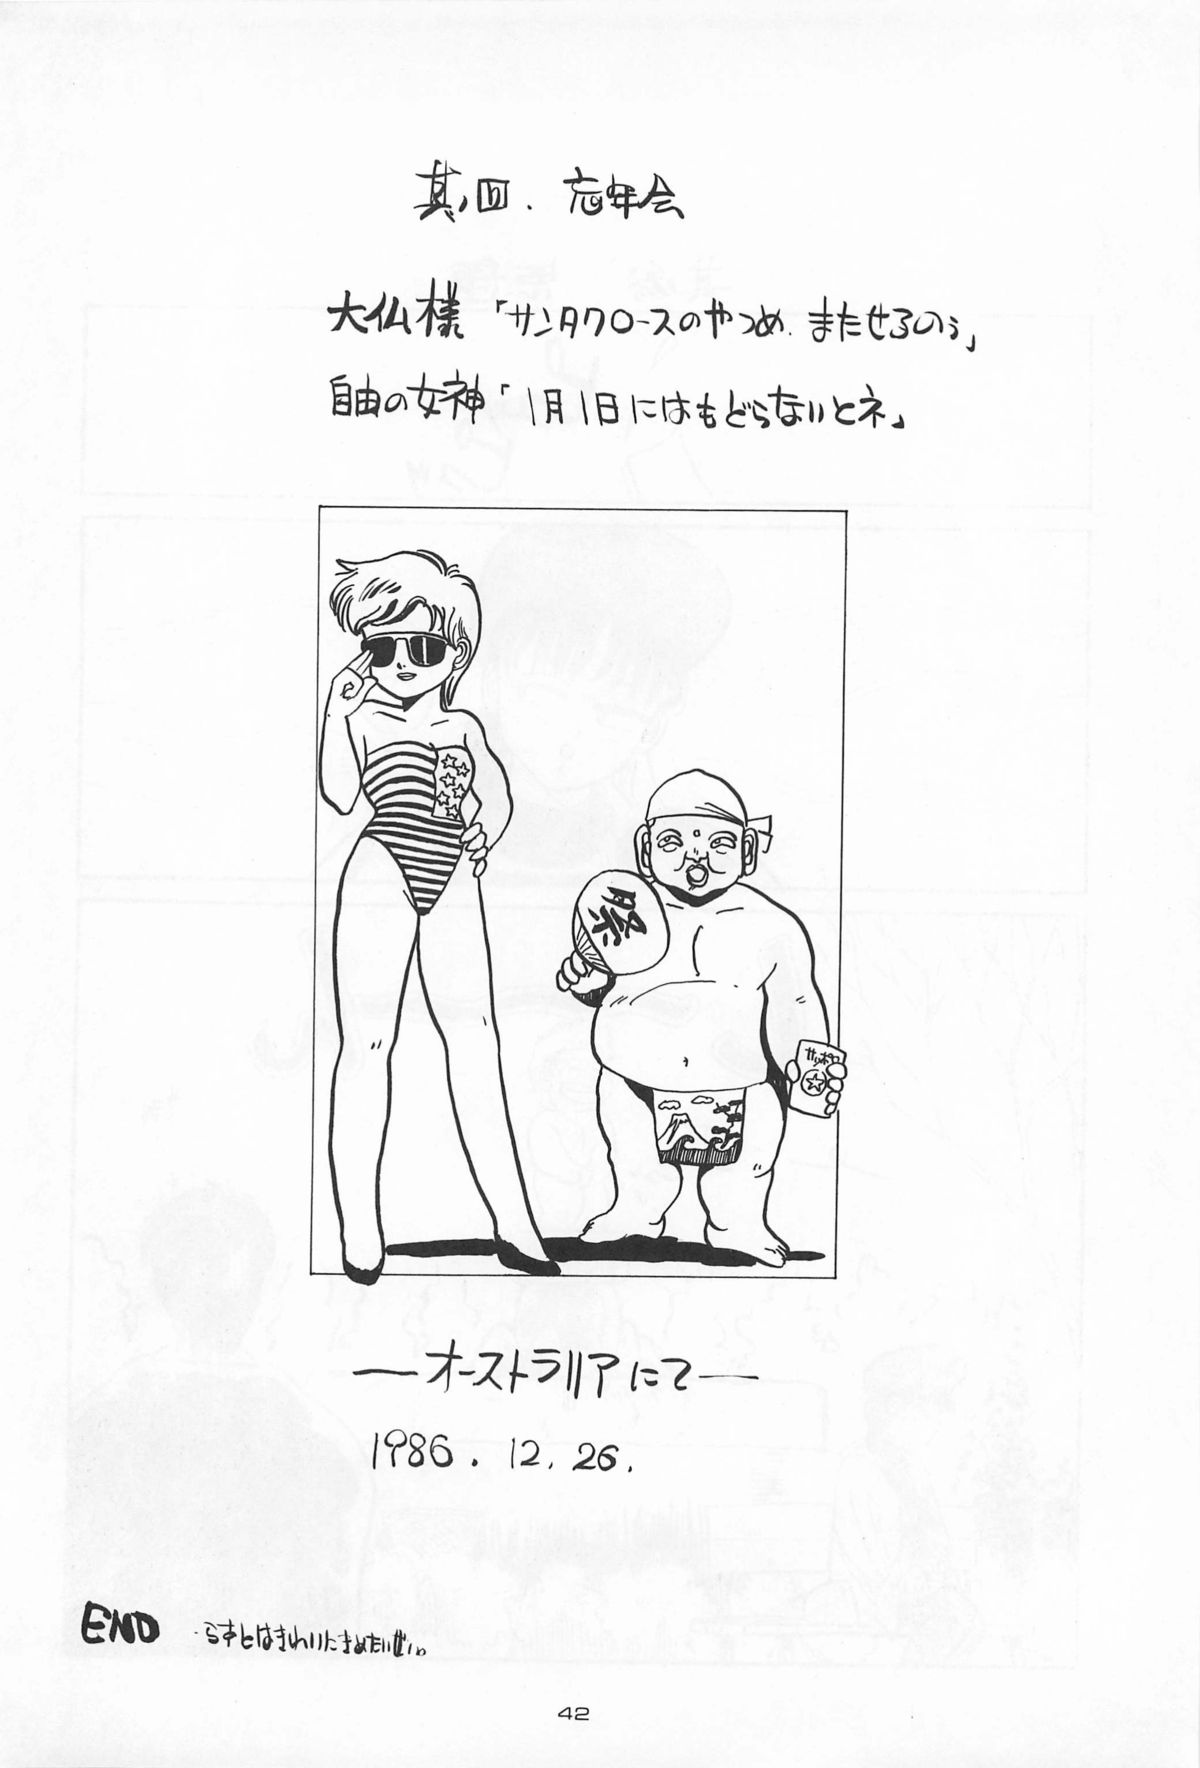 其ノ四. 忘年会
大仏様「サンタクロースのやつめ.またせるのぅ」
自由の女神「1月1日にはもどらないとネ」
祭
サッポロ
—オーストラリアにて—
1986.12.26.
END らすとはきれいにきめたいぜい。
42